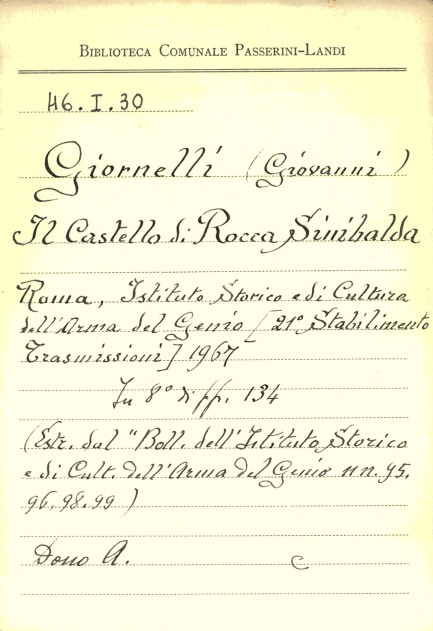 BIBLIOTECA COMUNALE PASSERINI-LANDI
46.I.30
Giornelli (Giovanni)
Il Castello di Rocca Sinibalda
Roma, Istituto Storico e di Cultura
dell'Arma del Genio [21° Stabilimento
Trasmissioni] 1967
In 8° di pp. 134
(Estr. dal "Boll. dell'Istituto Storico
e di Cult. dell'Arma del Genio nn. 95.
96.98.99)
Dono A. C